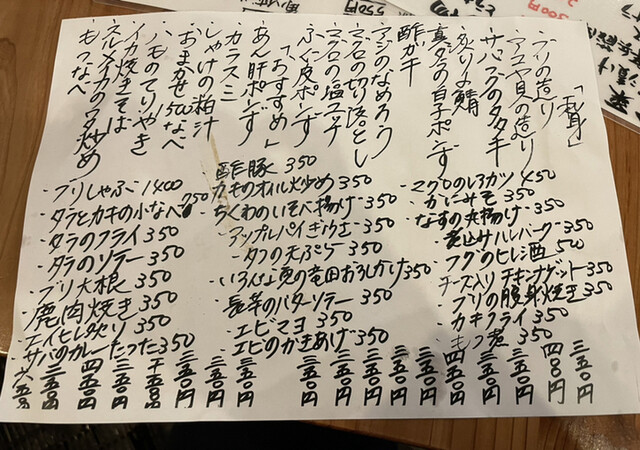 「刺身」
ブリの造り
アコヤ貝の造り
サバズシのタタキ
炙り〆鯖
真ダラの白子ポン酢
酢ガキ
アジのなめろう
マグロの塩ユッケ
ふぐ皮ポン酢
「おすすめ」
あん肝ポン酢
カラスミ
しゃけの粕汁
おまかせ1500なべ
ハモのてりやき
イカ焼きそば
スルメイカのワタ炒め
もつなべ
三五〇円
四〇〇円
三五〇円
三五〇円
三五〇円
四五〇円
三五〇円
三五〇円
三五〇円
三五〇円
三五〇円
三五〇円
三五〇円
四五〇円
・ブリしゃぶ 1400
・タラとカキの小なべ 750
・タラのフライ 350
・タラのソテー 350
・ブリ大根 350
・鹿肉焼き 350
・エイヒレ炙り 350
・サバのカレーたつた 350
酢豚 350
・カモのオイル炒め 350
・ちくわのいそべ揚げ 350
・アップルパイギョウザ 350
・タコの天ぷら 350
・いろんな魚の竜田おろしかけ 350
・長芋のバターソテー 350
・エビマヨ 350
・エビのかきあげ 350
・マグロのレアカツ 450
・かにみそ 350
・なすの丸揚げ 350
・煮込サルハンバーグ 350
・フグのヒレ酒 500
・チーズ入りチキンナゲット 350
・ブリの腹身焼き 350
・カキフライ 350
・もつ煮 350